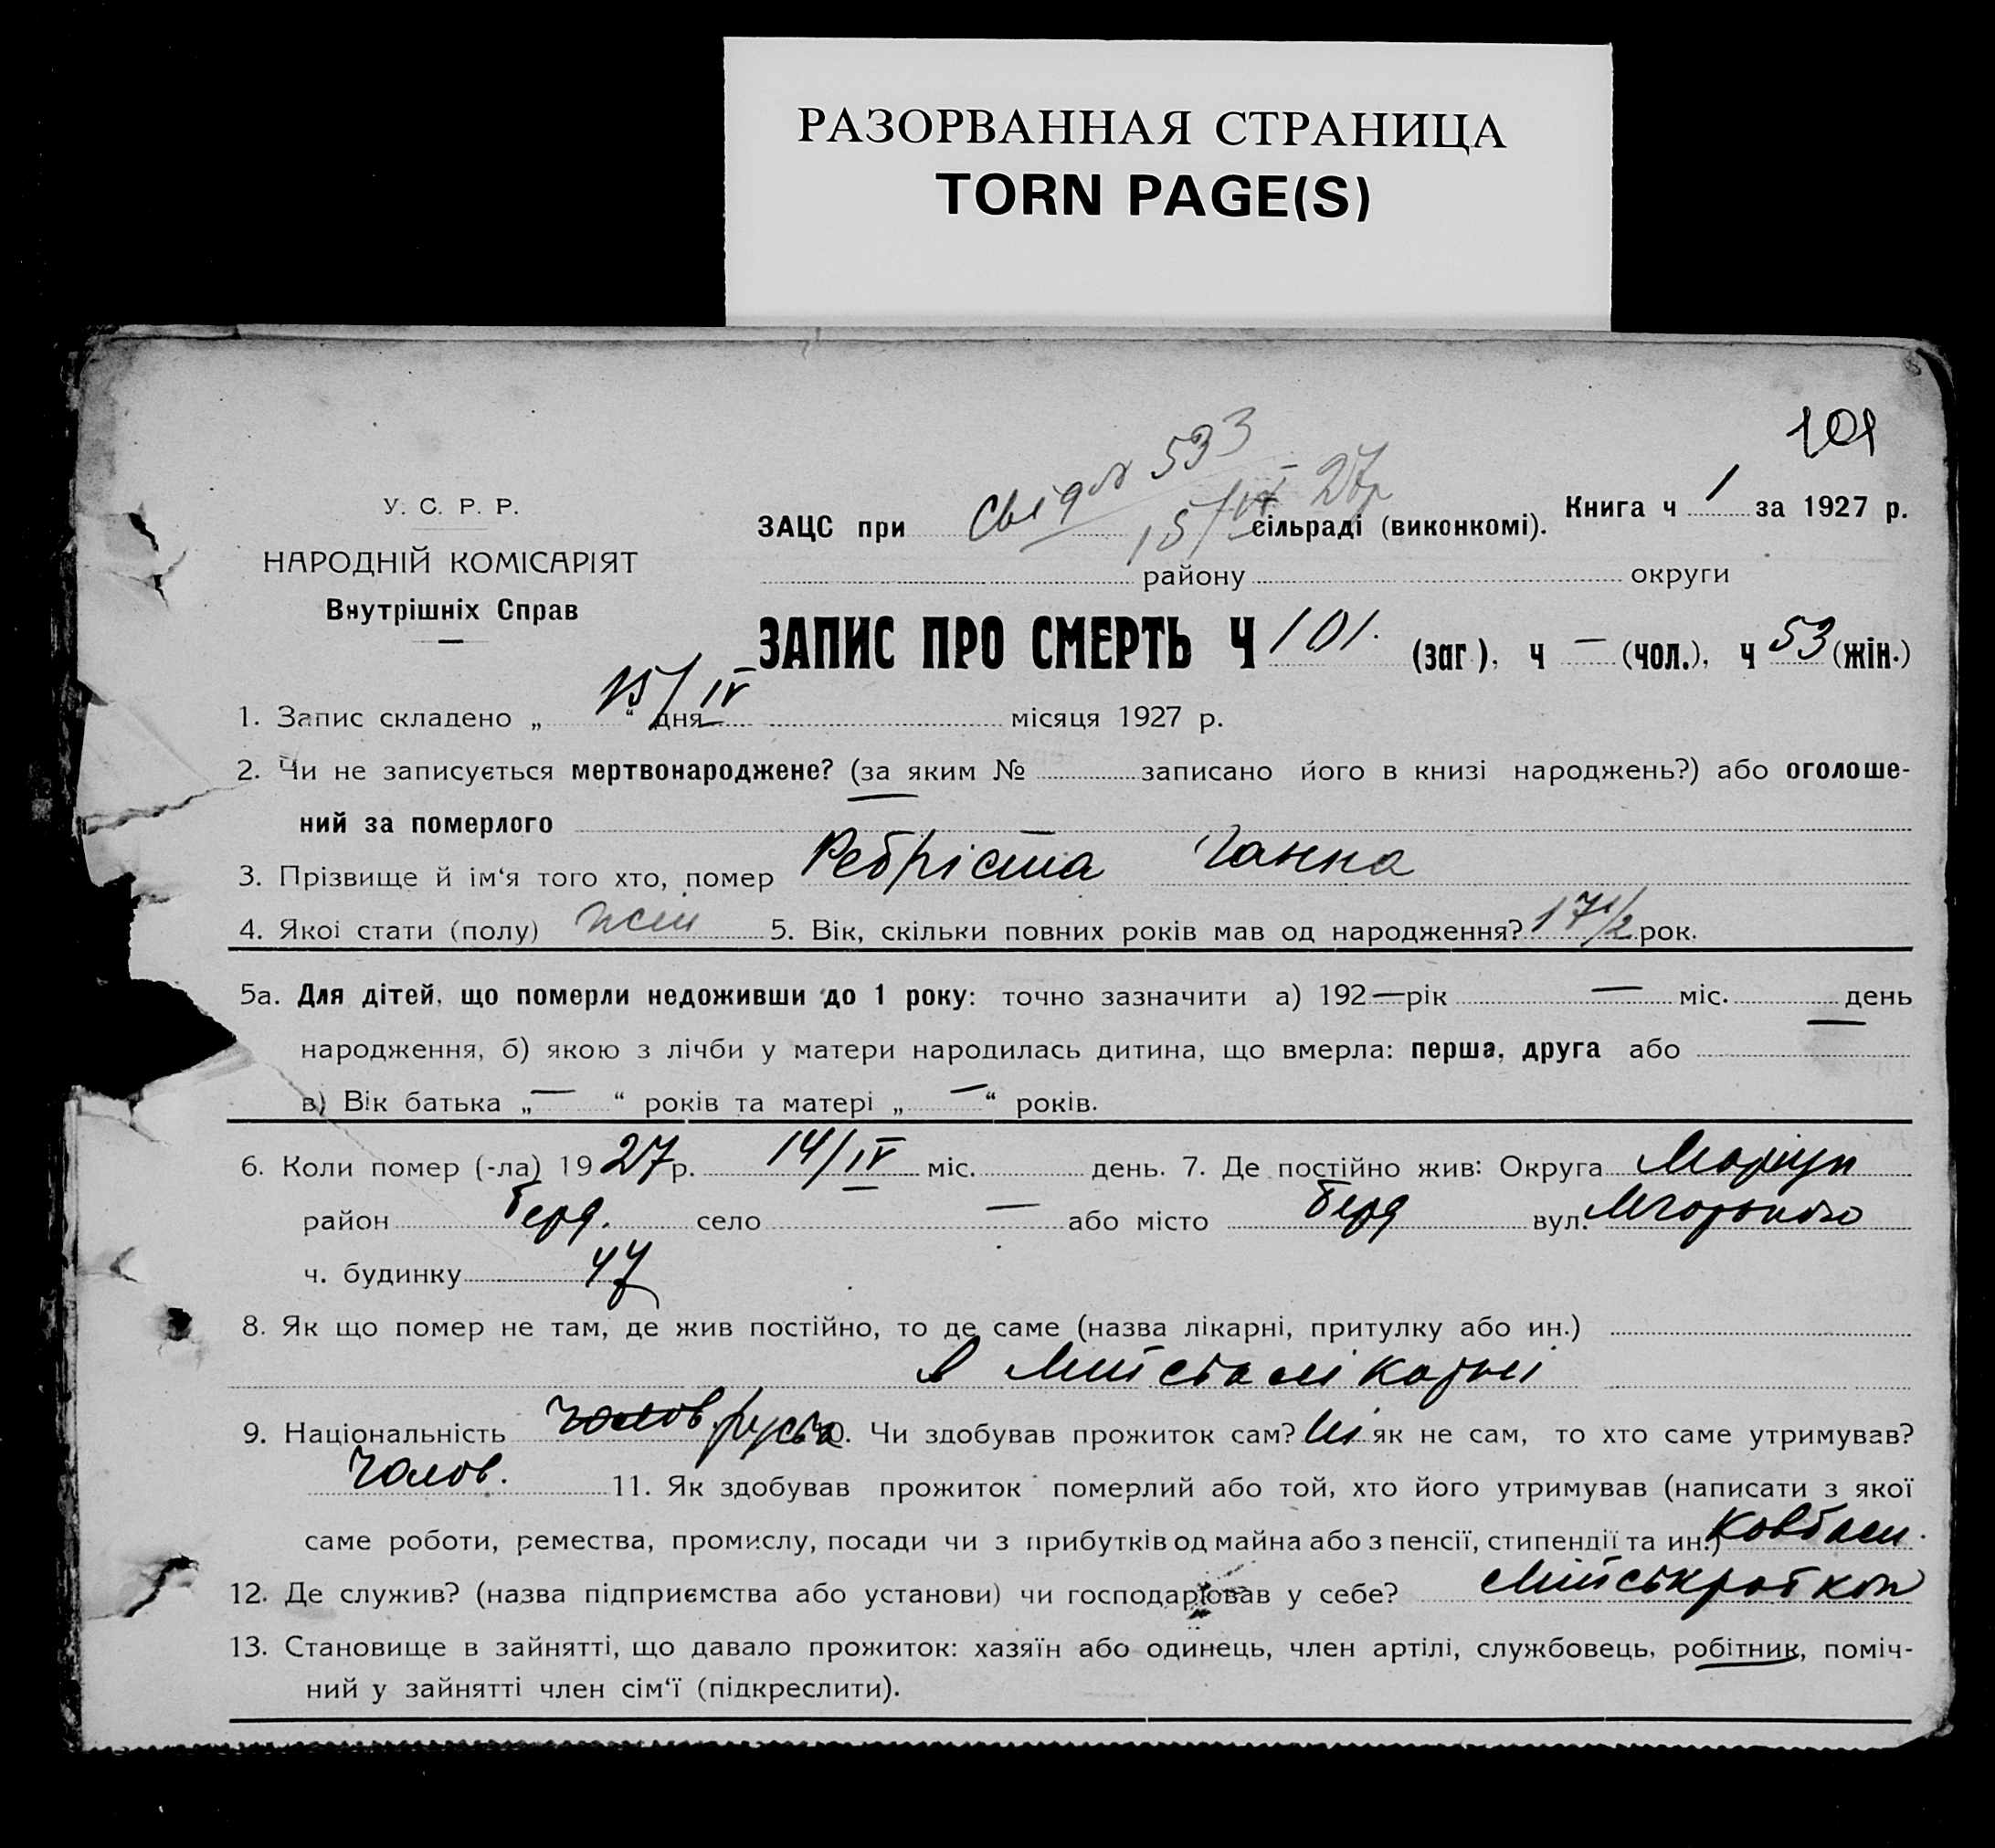 РАЗОРВАННАЯ СТРАНИЦА
TORN PAGE(S)
101
У. С. Р. Р.
НАРОДНІЙ КОМІСАРІЯТ
Внутрішніх Справ
Свід № 533
15/IV 27р
ЗАЦС при сільраді (виконкомі). Книга ч 1 за 1927 р.
району округи
ЗАПИС ПРО СМЕРТЬ Ч 101. (заг.), ч — (чол.), ч 53 (жін.)
1. Запис складено „ 15/IV “ дня місяця 1927 р.
2. Чи не записується мертвонароджене? (за яким № записано його в книзі народжень?) або оголоше-
ний за померлого —
3. Прізвище й ім‘я того хто, помер Ребріста Ганна
4. Якоі стати (полу) жін 5. Вік, скільки повних років мав од народження? 17 1/2 рок.
5а. Для дітей, що померли недоживши до 1 року: точно зазначити а) 192—рік — міс. — день
народження, б) якою з лічби у матери народилась дитина, що вмерла: перша, друга або
в) Вік батька „ — “ років та матері „ — “ років.
6. Коли помер (-ла) 1927 р. 14/IV міс. день. 7. Де постійно жив: Округа Маріуп
район Берд. село — або місто Берд вул. МГорького
ч. будинку 47
8. Як що помер не там, де жив постійно, то де саме (назва лікарні, притулку або ин.)
в лікарні
9. Національність Чолов руська 10. Чи здобував прожиток сам? Ні як не сам, то хто саме утримував?
Чолов. 11. Як здобував прожиток померлий або той, хто його утримував (написати з якої
саме роботи, ремества, промислу, посади чи з прибутків од майна або з пенсії, стипендії та ин.) Ковбасн.
12. Де служив? (назва підприємства або установи) чи господарював у себе? Міськробкоп
13. Становище в зайнятті, що давало прожиток: хазяїн або одинець, член артілі, службовець, робітник, поміч-
ний у зайнятті член сім‘ї (підкреслити).